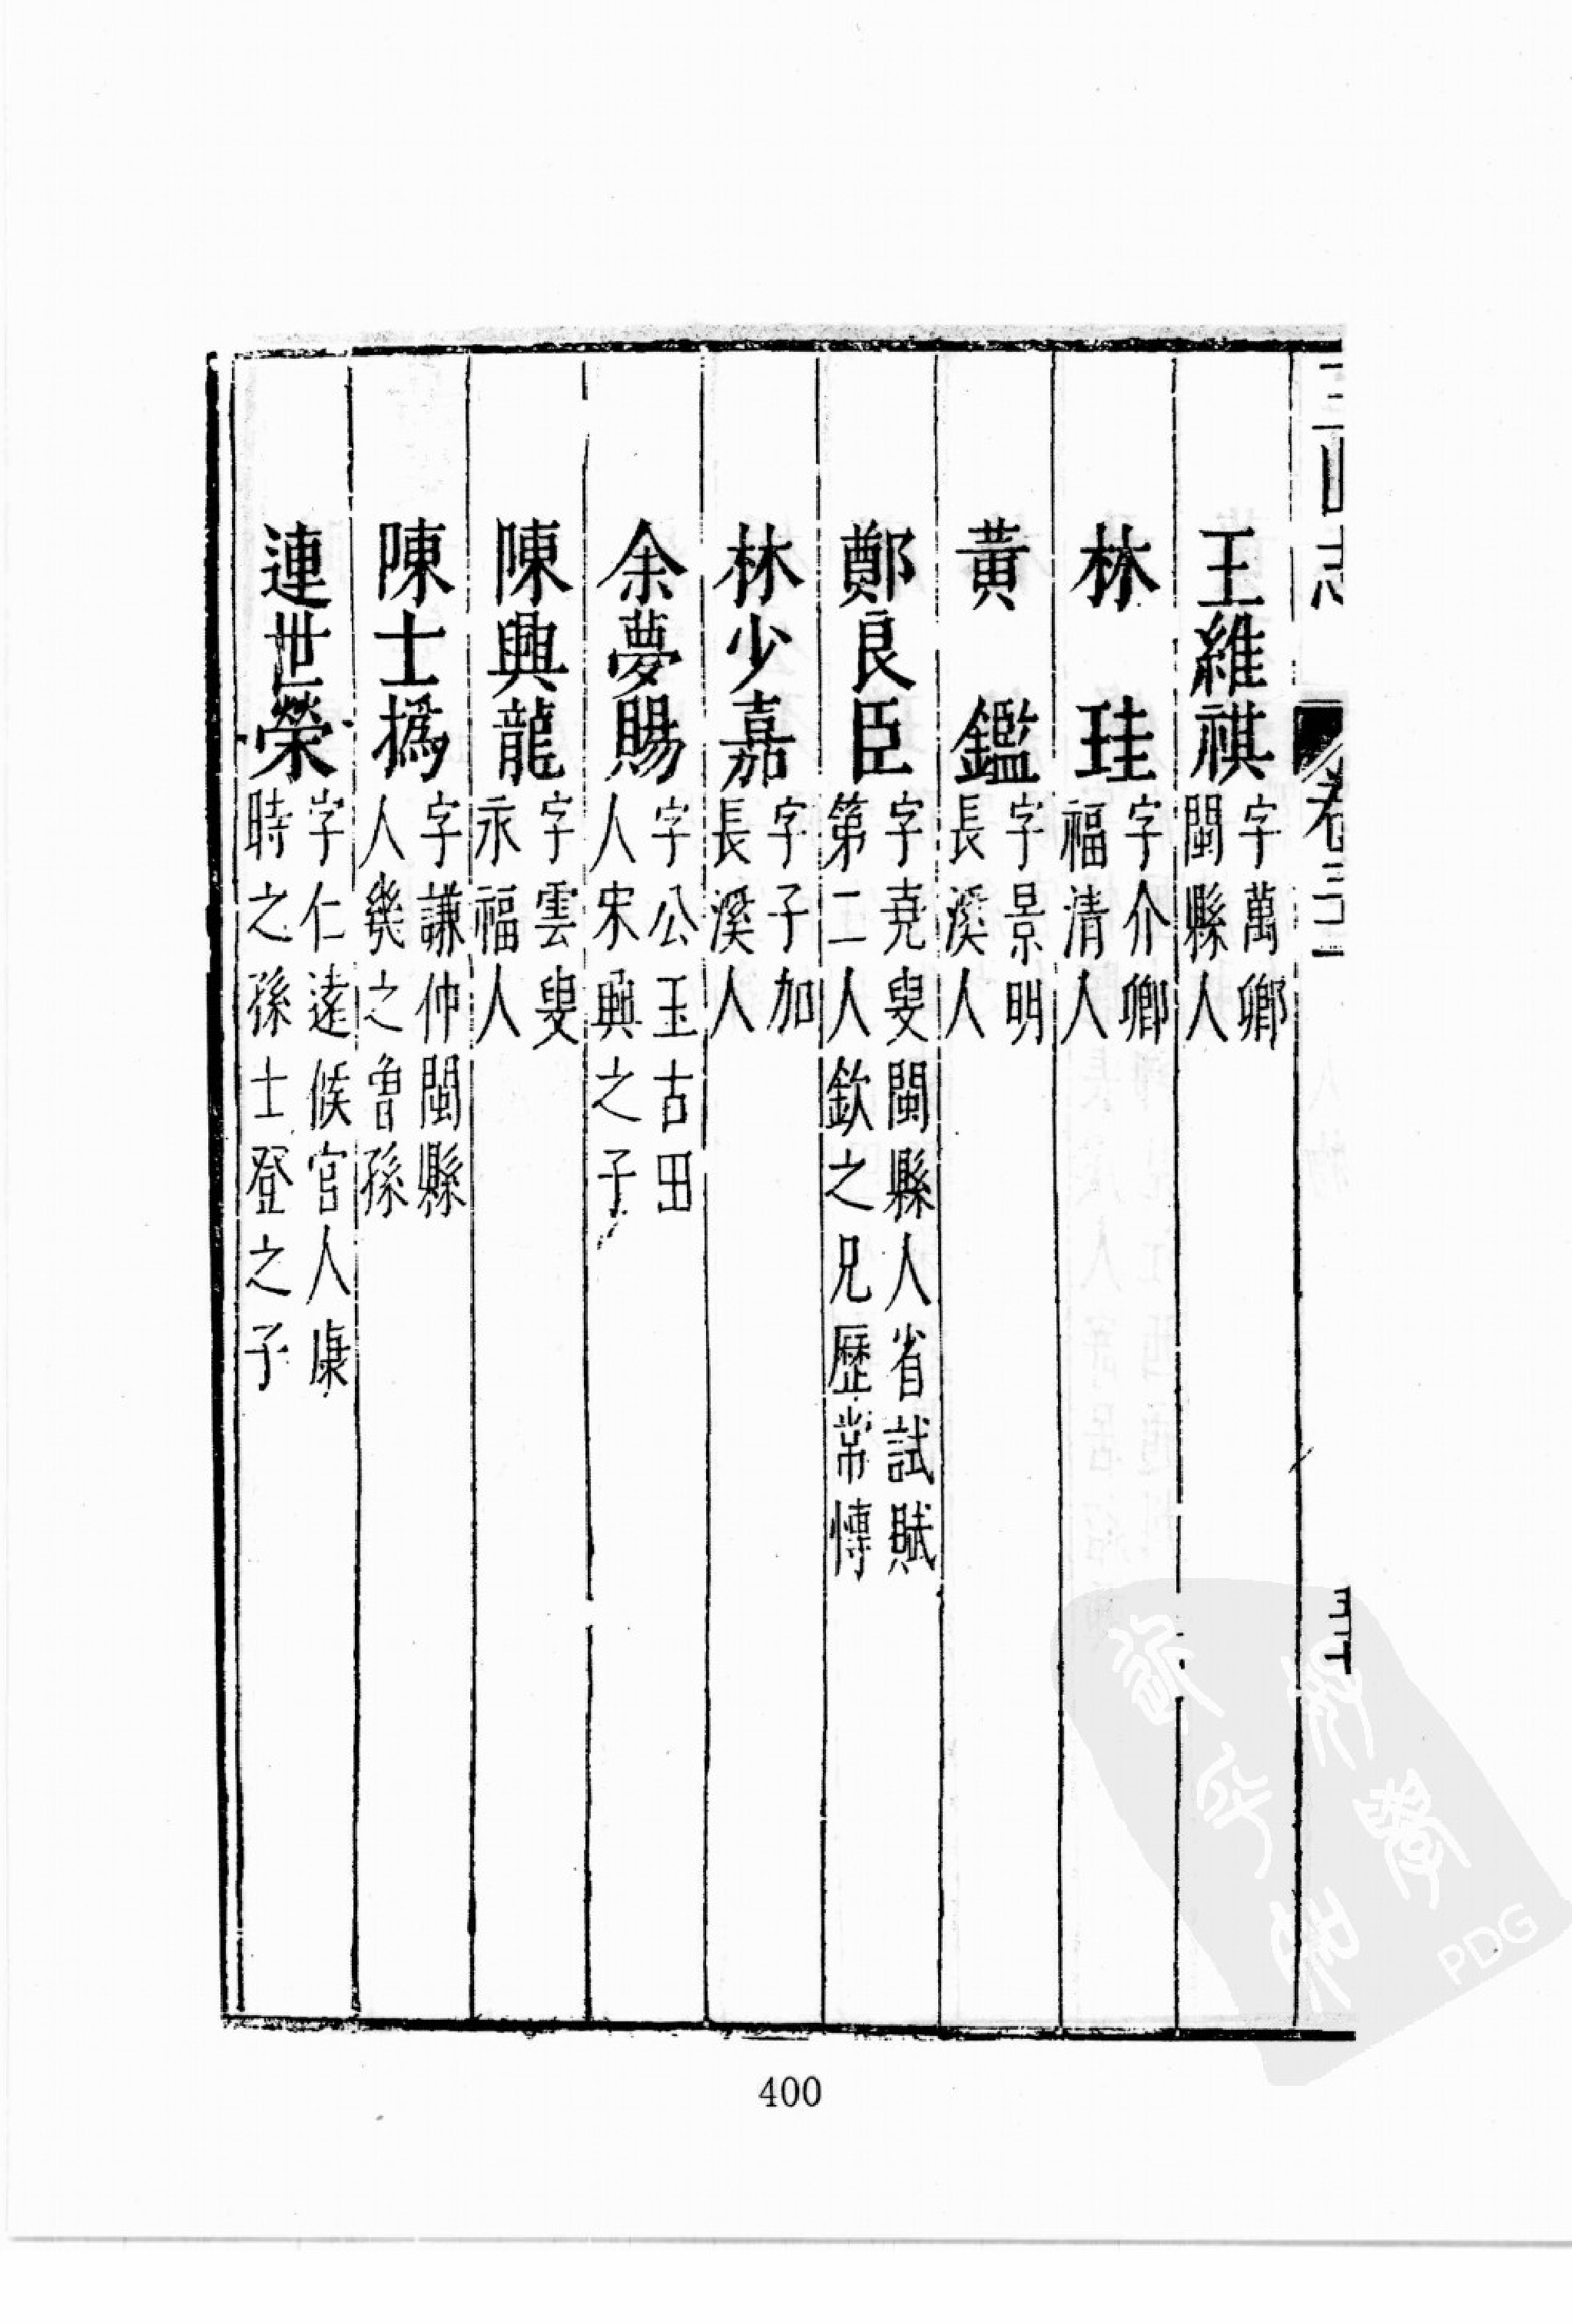 三山志 卷三 五
王維祺 字萬卿
閩縣人
林 珪 字介卿
福清人
黃 鑑 字景明
長溪人
鄭良臣 字堯叟閩縣人省試賦
第二人欽之兄歷常博
林少嘉 字子加
長溪人
余夢賜 字公玉古田
人宋興之子
陳興龍 字雲叟
永福人
陳士撝 字謙仲閩縣
人幾之曾孫
連世榮 字仁遠候官人康
時之孫士登之子
400
PDG